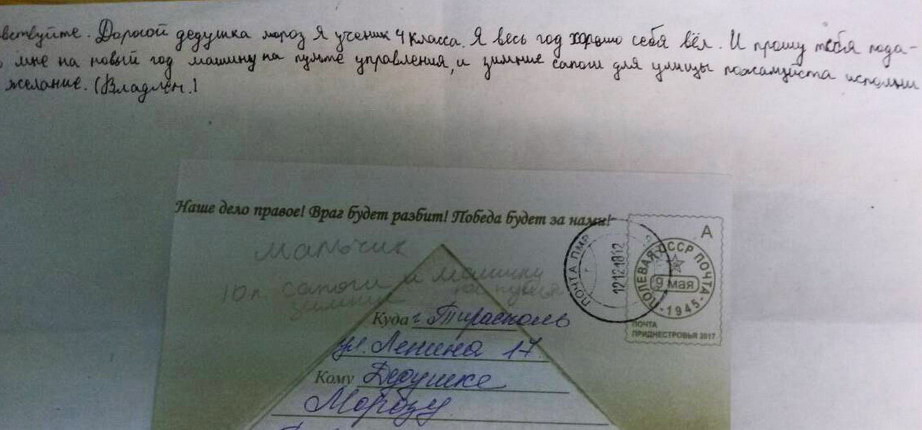 вствуйте. Дорогой дедушка мороз Я ученик 4 класса. Я весь год хорошо себя вёл. И прошу тебя пода-
мне на новый год машину на пумте управления, и зимние сапоги для улицы пожамуйста исполни
желание. (Владлен.)
Наше дело правое! Враг будет разбит! Победа будет за нами!
мальчик
10 л. сапоги и машину
зимние на пульте
Куда г. Тирасполь
ул. Ленина 17
Кому Дедушке
Морозу
ПОЧТА ПМР
12121812
А
ПОЛЕВАЯ СССР ПОЧТА
9 мая
-1945-
ПОЧТА
ПРИДНЕСТРОВЬЯ 2017